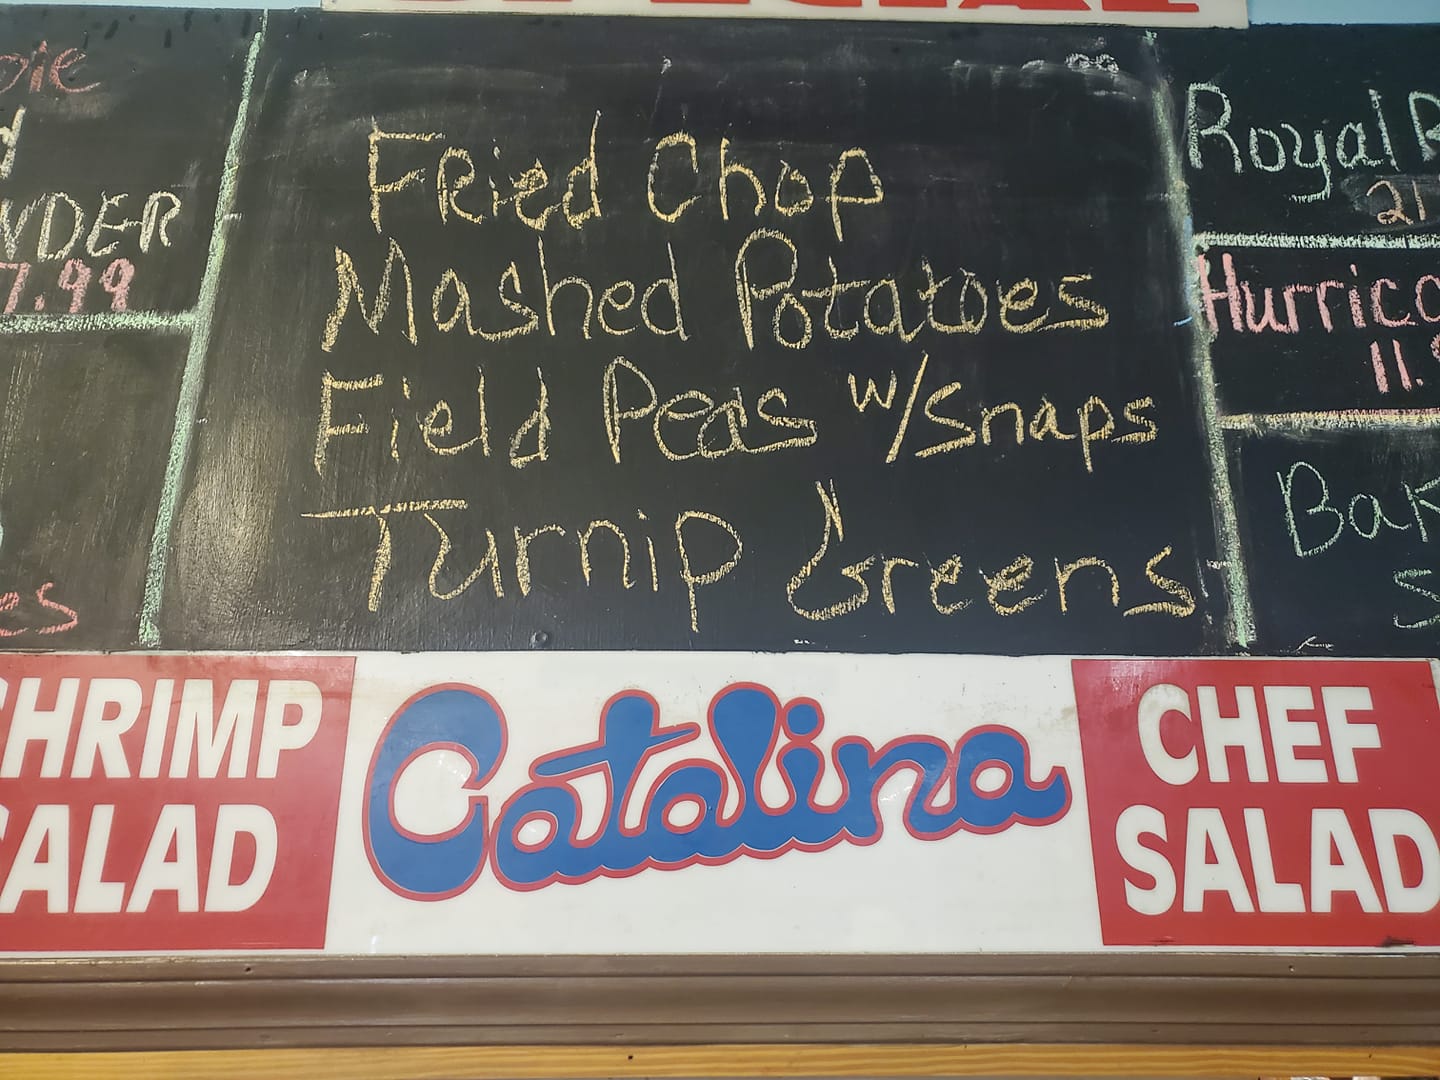 SPECIAL
Fried Chop
Mashed Potatoes
Field Peas w/Snaps
Turnip Greens
NDER
7.99
es
Royal R
21
Hurrica
11.
Bak
S
SHRIMP
SALAD
Catalina
CHEF
SALAD